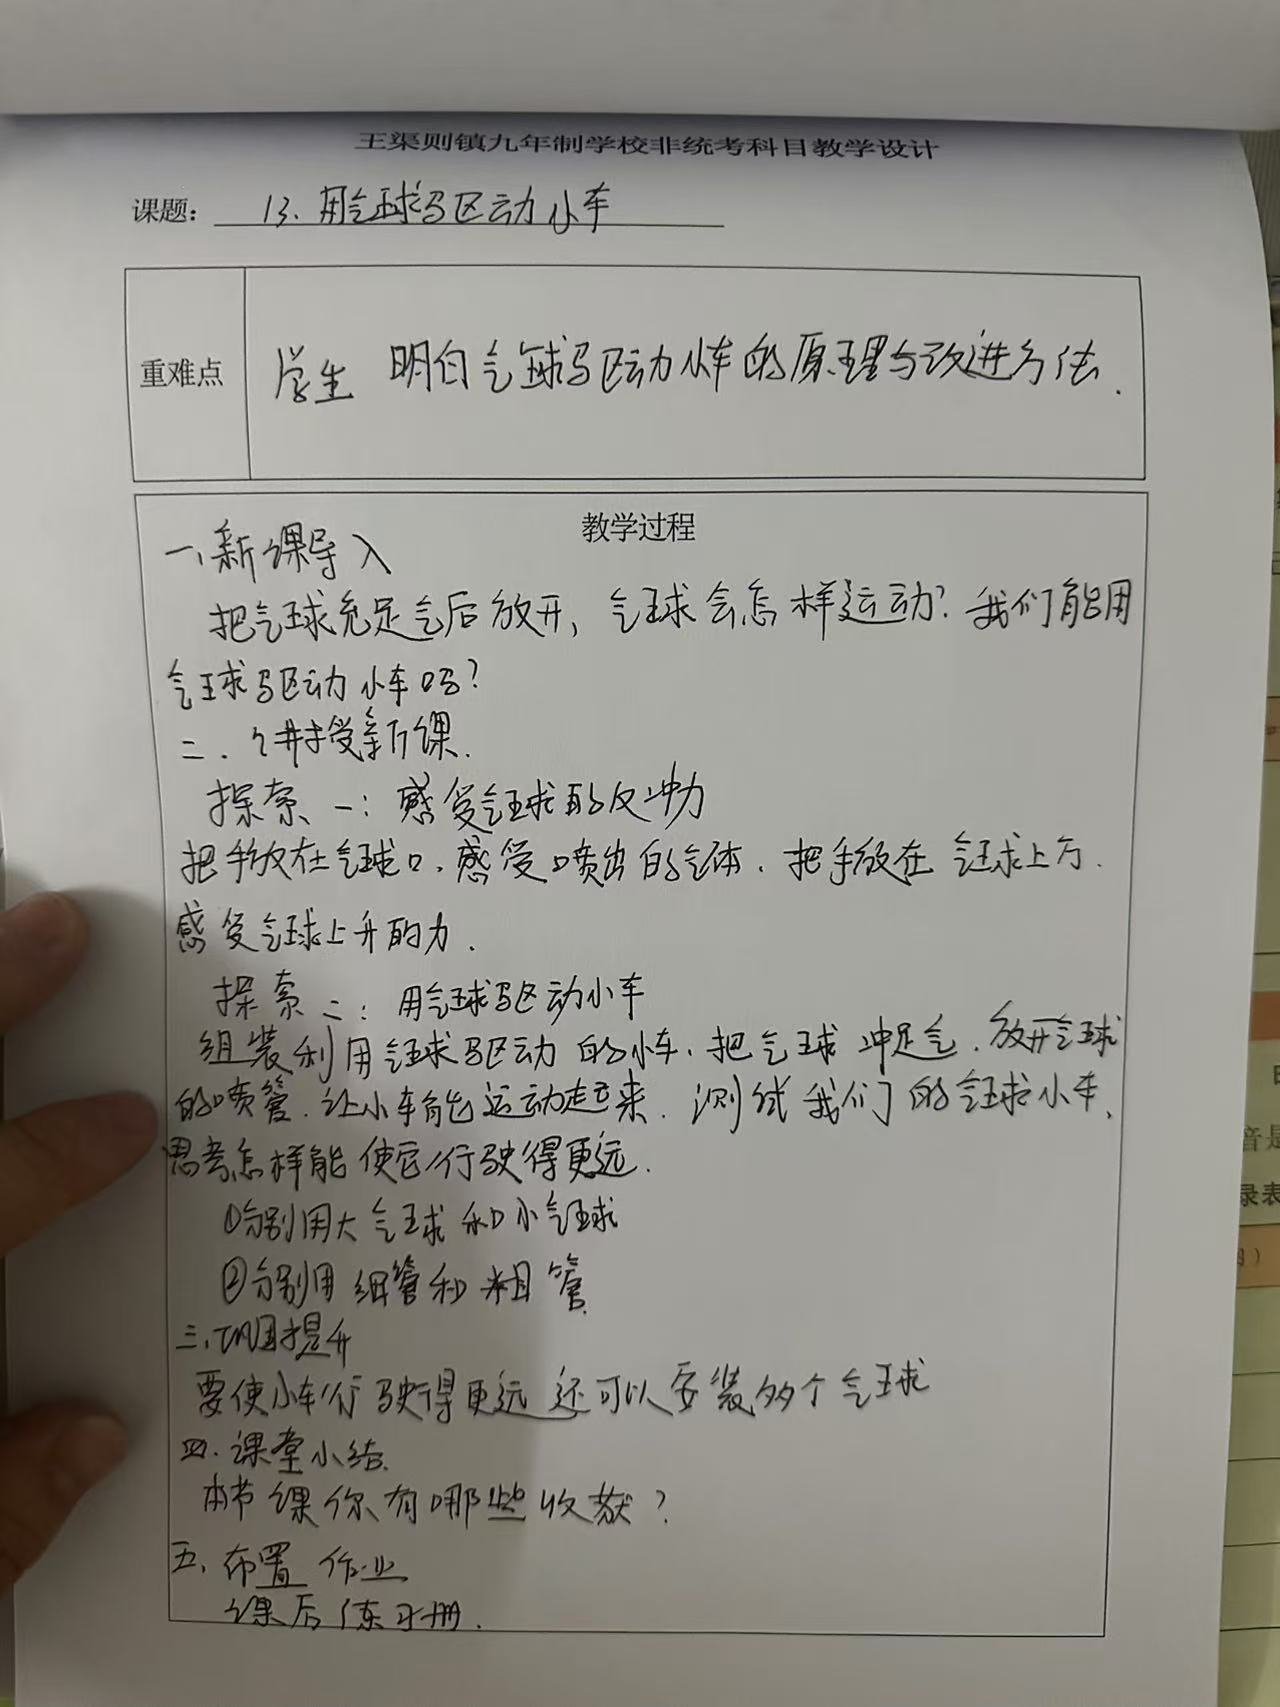 王渠则镇九年制学校非统考科目教学设计
课题： 13、用气球驱动小车
重难点
学生 明白气球驱动小车的原理与改进方法.
教学过程
一、新课导入
把气球充足气后放开，气球会怎样运动？我们能用
气球驱动小车吗？
二、讲授新课.
探索一：感受气球的反冲力
把手放在气球口，感受喷出的气体．把手放在气球上方．
感受气球上升的力．
探索二：用气球驱动小车
组装利用气球驱动的小车，把气球冲足气．放开气球
的喷管．让小车能运动起来．测试我们的气球小车、
思考怎样能使它行驶得更远．
①分别用大气球和小气球
②分别用细管和粗管.
三、巩固提升
要使小车行驶得更远还可以安装多个气球
四．课堂小结.
本节课你有哪些收获？
五、布置作业
课后练习册．
音是
录表